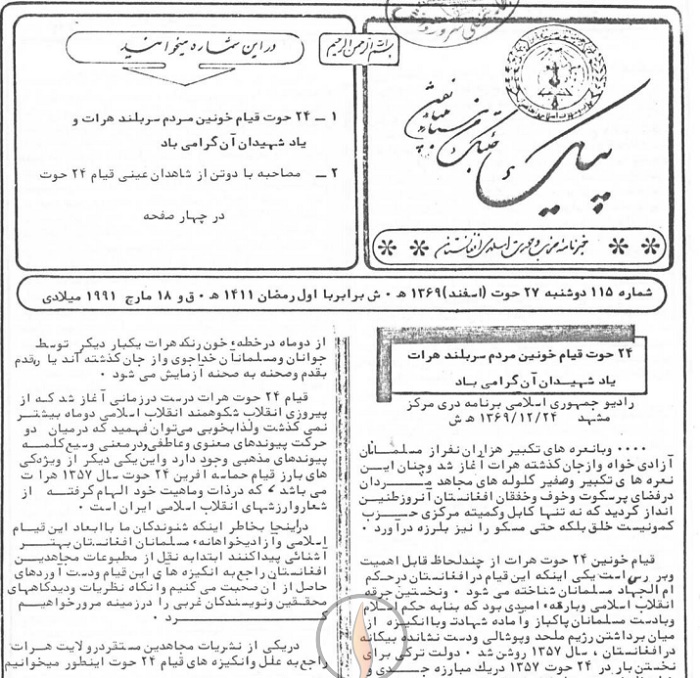 در این شماره میخوانید
۱ – ۲۴ حوت قیام خونین مردم سربلند هرات و
یاد شهیدان آن گرامی باد
۲ – مصاحبه با دوتن از شاهدان عینی قیام ۲۴ حوت
در چهار صفحه
بسم الله الرحمن الرحیم
پیام
خبرنامه حزب وحدت اسلامی افغانستان
شماره ۱۱۵ دوشنبه ۲۷ حوت (اسفند) ۱۳۶۹ ه‍ . ش برابربا اول رمضان ۱۴۱۱ ه‍ . ق و ۱۸ مارچ ۱۹۹۱ میلادی
۲۴ حوت قیام خونین مردم سربلند هرات
یاد شهیدان آن گرامی باد
رادیو جمهوری اسلامی برنامه دری مرکز
مشهد ۱۳۶۹/۱۲/۲۴ ه‍ ش
.... وبانعره های تکبیر هزاران نفراز مسلمانان
آزادی خواه وازجان گذشته هرات آغاز شد وچنان این
نعره ها ی تکبیر وصفیر گلوله های مجاهد مردان
درفضای پرسکوت وخوف وخفقان افغانستان آنروزطنین
انداز گردید که نه تنها کابل وکمیته مرکزی حزب
کمونیست خلق بلکه حتی مسکو را نیز بلرزه درآورد .
قیام خونین ۲۴ حوت هرات از چندلحاظ قابل اهمیت
وبررسی است یکی اینکه این قیام درافغانستان درحکم
ام الجهاد مسلمانان شناخته می شود . ونخستین جرقه
انقلاب اسلامی وبارقهء امیدی بود که بنابه حکم اسلام
وبادست مسلمانان پاکباز وآماده شهادت وباانگیزه از
میان برداشتن رژیم ملحد وپوشالی ودست نشانده بیگانه
درافغانستان ، سال ۱۳۵۷ روشن شد . دولت ترکی برای
نخستن بار در ۲۴ حوت ۱۳۵۷ دریك مبارزه جدی و
از دوماه درخطهء خون رنگ هرات یکبار دیگر توسط
جوانان ومسلمانان خداجوی واز جان گذشته آند یا رقدم
بقدم وصحنه به صحنه آزمایش می شود .
قیام ۲۴ حوت هرات درست درزمانی آغاز شد که از
پیروزی انقلاب شکوهمند انقلاب اسلامی دوماه بیشتر
نمی گذشت ولذابخوبی می توان فهمید که درمیان دو
حرکت پیوندهای معنوی وعاطفی ودرمعنی وسیع کلمه
پیوندهای مذهبی وجود دارد واین یکی دیگر از ویژه گی
های بارز قیام حماسه آفرین ۲۴ حوت سال ۱۳۵۷ هرات
می باشد ، که درذات وماهیت خود الهام گرفته از
شعاروارزشهای انقلاب اسلامی ایران است .
دراینجا بخاطر اینکه شنوندگان ما باابعاد این قیام
اسلامی وآزادیخواهانهء مسلمانان افغانستان بهتر
آشنائی پیداکنند ابتدابه نقل از مطبوعات مجاهدین
افغانستان راجع به انگیزه های این قیام ودست آوردهای
حاصل از آن صحبت می کنیم وآنگاه نظریات ودیدگاههای
محققین ونویسندگان غربی را درزمینه مرورخواهیم
کرد .
دریکی از نشریات مجاهدین مستقردرولایت هرات
راجع به علل وانگیزه های قیام ۲۴ حوت اینطور میخوانیم